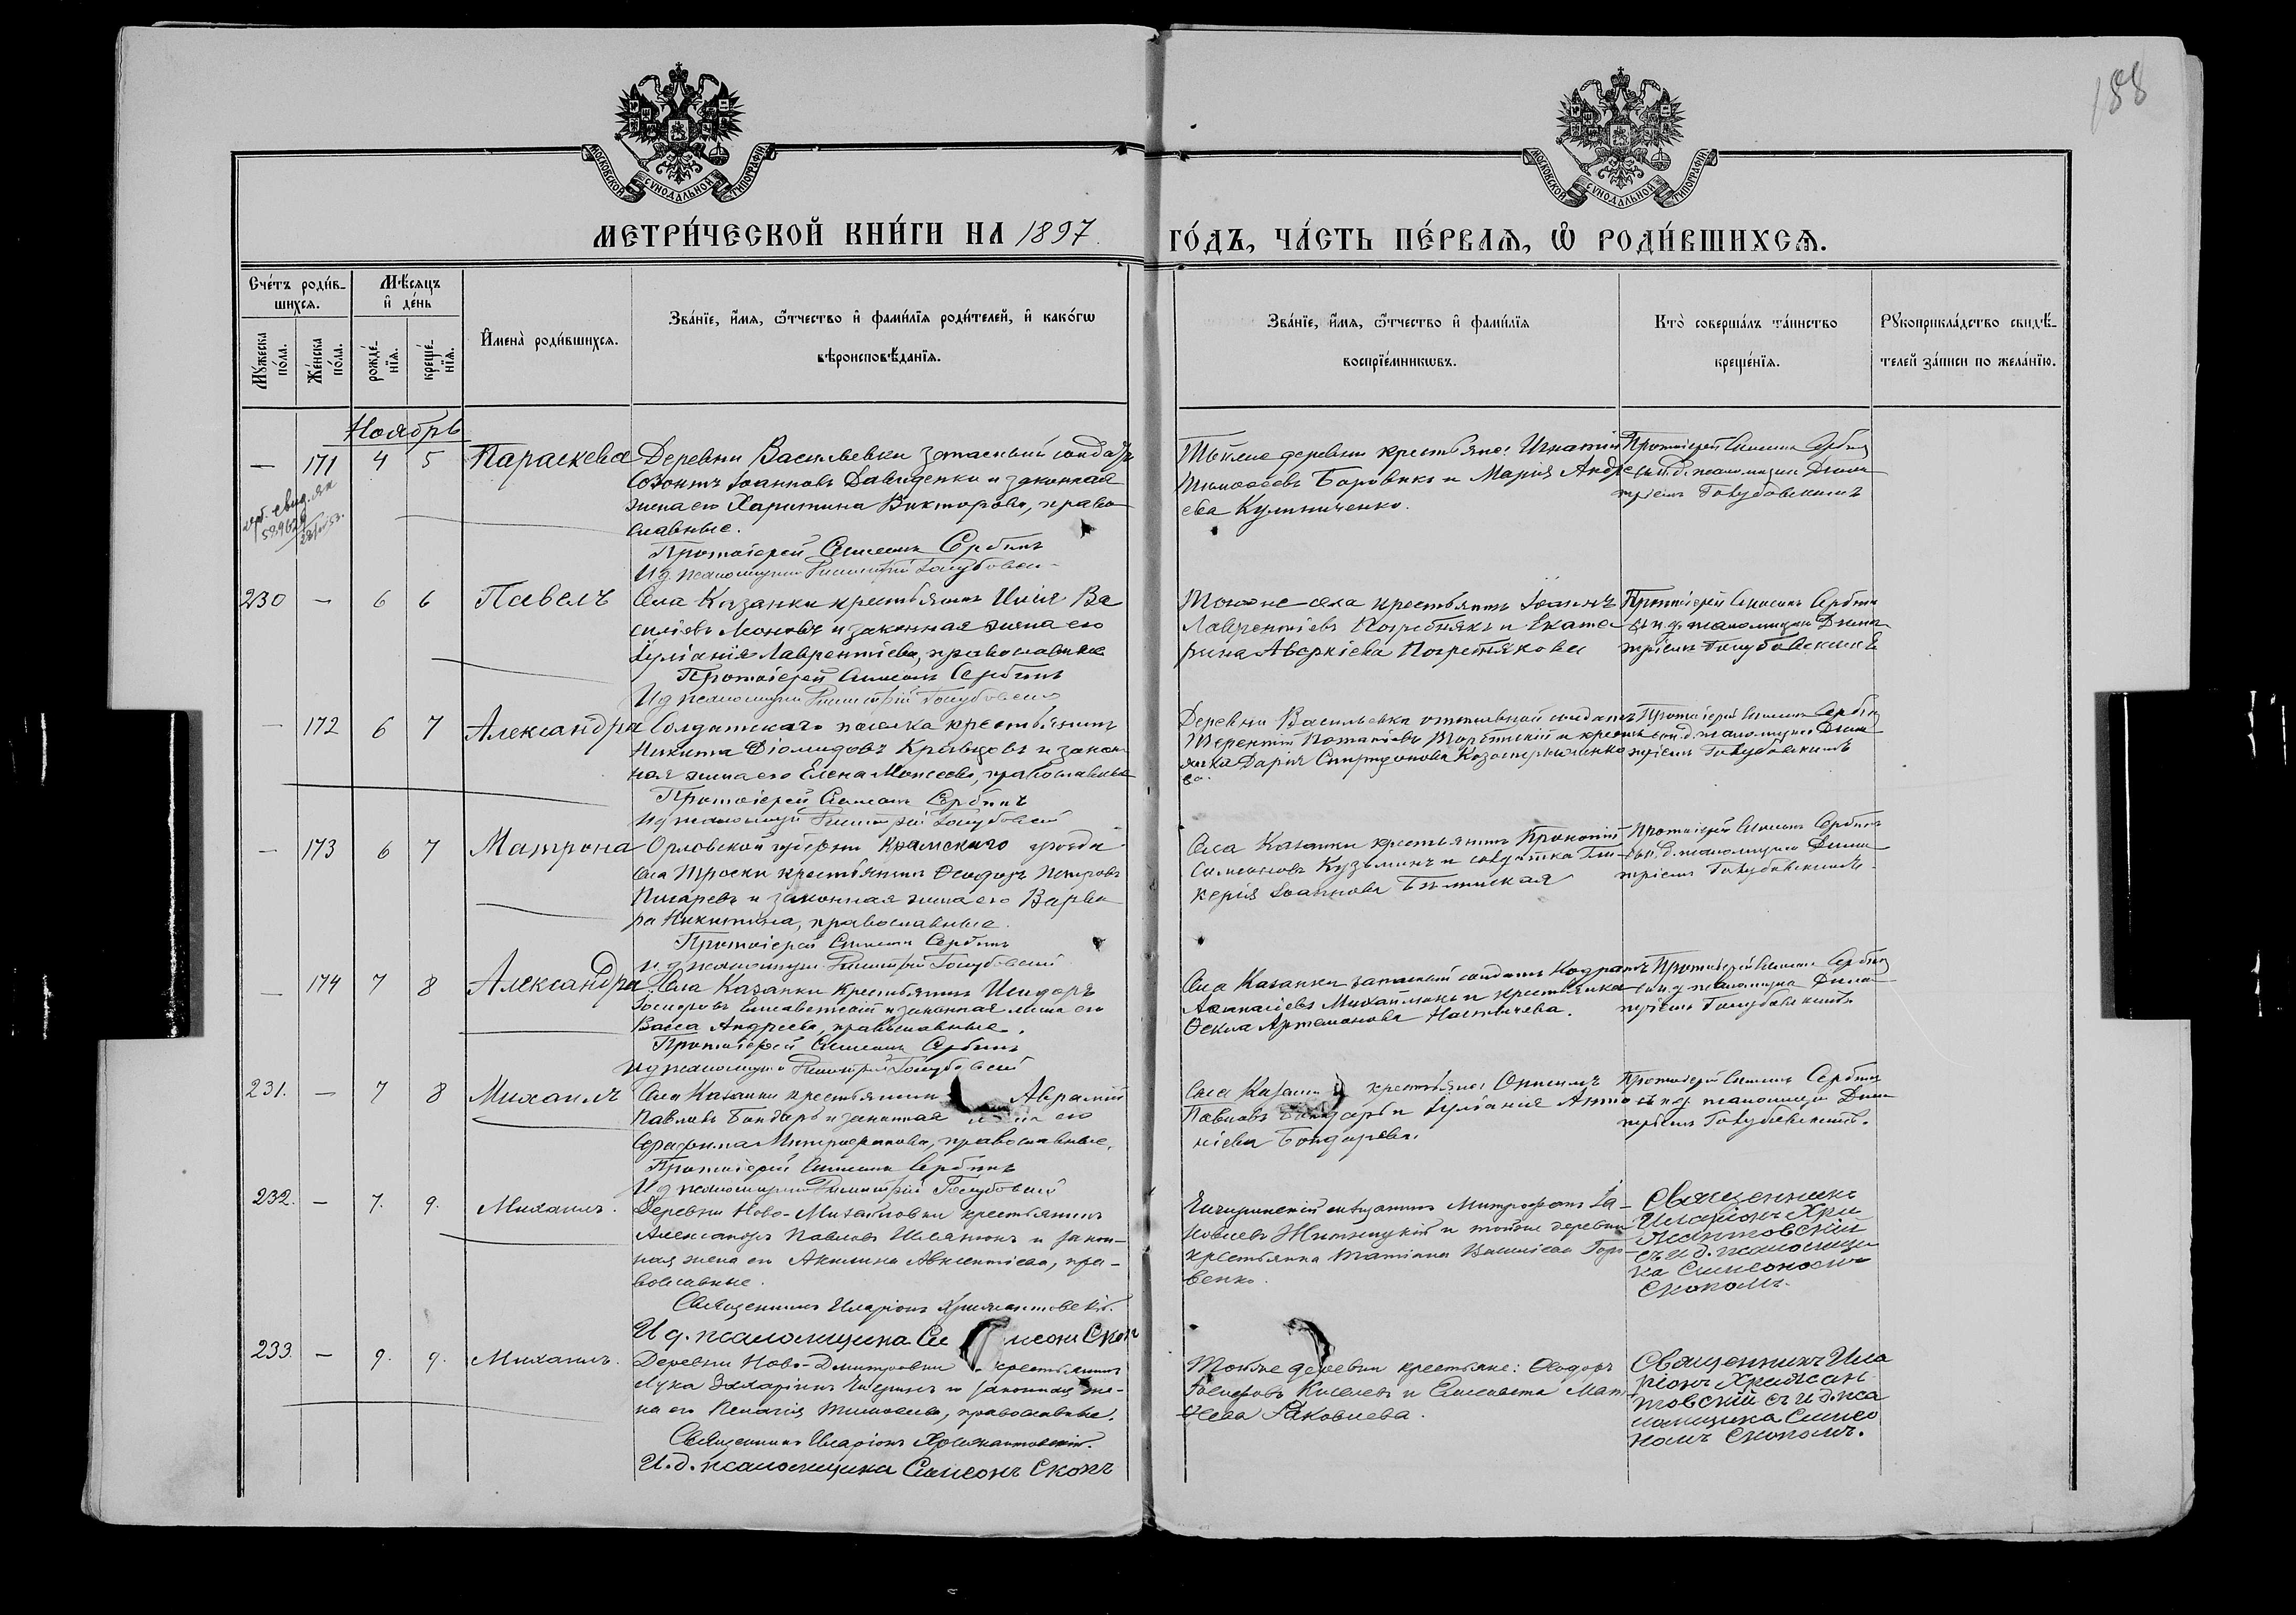 188
МОСКОВСКОЙ СѴНОДАЛЬНОЙ ТИПОГРАФІИ
МОСКОВСКОЙ СѴНОДАЛЬНОЙ ТИПОГРАФІИ
МЕТРИ́ЧЕСКОЙ КНИ́ГИ НА 1897 ГО́ДЪ, ЧА́СТЬ ПЕ́РВАѦ, Ѡ РОДИ́ВШИХСѦ.
Сче́тъ роди́в-
шихся.
Мѣ́сяцъ
и де́нь
Мꙋ́жеска
по́ла.
Же́нска
по́ла.
рожде́-
нїя.
креще́-
нїя.
Имена̀ роди́вшихся.
Зва́нїе, и́мя, ѻ҆́тчество и фами́лїя роди́телей, и како́гѡ
вѣроисповѣ́данїя.
Зва́нїе, и́мя, ѻ҆́тчество и фами́лїя
воспрїе́мникѡвъ.
Кто̀ соверша́лъ та́инство
креще́нїя.
Рꙋкоприкла́дство свидѣ́-
телей за́писи по жела́нїю.
Ноябрь
— 171 4 5 Параскева
Деревни Васильевки запасный солдатъ
Созонтъ Іоанновъ Давиденко и законная
жена его Харитина Викторова, право
славные.
Протоіерей Симеонъ Сербинъ
И д. псаломщика Димитрій Голубовскій
Тойже деревни крестьяне: Игнатій
Тимофеевъ Боровикъ и Марія Андре
ева Кулиниченко.
Протоіерей Симеонъ Сербинъ
съ и. д. псаломщика Дими
тріемъ Голубовскимъ
230 — 6 6 Павелъ
Села Казанки крестьянинъ Илія Ва
силіевъ и законная жена его
Іуліанія Лаврентіева, православные
Протоіерей Симеонъ Сербинъ
И д псаломщика Димитрій Голубовскій
Тогоже села крестьянинъ Іоаннъ
Лаврентіевъ Погребнякъ и Екате
рина Аверкіева Погребнякова
Протоіерей Симеонъ Сербинъ
съ и. д. псаломщика Дими
тріемъ Голубовскимъ
— 172 6 7 Александра
Солдатскаго поселка крестьянинъ
Никита Діомидовъ Кравцовъ и закон
ная жена его Елена Моисеева, православные
Протоіерей Симеонъ Сербинъ
И д псаломщика Димитрій Голубовскій
Деревни Васильевки солдатъ
Терентій Потапіевъ и крестья
янка Дарія Спиридонова
Протоіерей Симеонъ Сербинъ
съ и. д. псаломщика Дими
тріемъ Голубовскимъ
— 173 6 7 Матрона
Орловской губерніи Крамскаго уѣзда
села Троски крестьянинъ Ѳеодоръ Петровъ
Писаревъ и законная жена его Варва
ра Никитина, православные.
Протоіерей Симеонъ Сербинъ
И д псаломщика Димитрій Голубовскій
Села Казанки крестьянинъ Прокопій
Симеоновъ Кузьминъ и солдатка Гли
керія Іоаннова
Протоіерей Симеонъ Сербинъ
съ и. д. псаломщика Дими
тріемъ Голубовскимъ
— 174 7 8 Александра
Села Казанки крестьянинъ Исидоръ
Іосифовъ и законная жена его
Васса Андреева, православные.
Протоіерей Симеонъ Сербинъ
И д псаломщика Димитрій Голубовскій
Села Казанки запасный солдатъ Кодратъ
Аѳанасіевъ и крестьянка
Ѳекла Артемонова
Протоіерей Симеонъ Сербинъ
съ и. д. псаломщика Дими
тріемъ Голубовскимъ
231. — 7 8 Михаилъ
Села Казанки крестьянинъ Аврамій
Павловъ Бондарь и законная жена его
Серафима Митрофанова, православные.
Протоіерей Симеонъ Сербинъ
И д псаломщика Димитрій Голубовскій
Села Казанки крестьяне: Онисимъ
Павловъ Бондарь и Іуліанія Анто
ніева Бондарева.
Протоіерей Симеонъ Сербинъ
съ и. д. псаломщика Дими
тріемъ Голубовскимъ.
232. — 7. 9. Михаилъ.
Деревни Ново-Михайловки крестьянинъ
Александръ Павловъ и закон-
ная жена его Акилина Авксентіева, пра-
вославные.
Священникъ Иларіонъ Хрисантовскій.
И д. псаломщика Симеонъ Скопъ
Чигиринскій мѣщанинъ Митрофанъ Іа-
ковлевъ Житницкій и тойже деревни
крестьянка Татіана Василіева Гор-
бенко.
Священникъ
Иларіонъ Хри
сантовскій
съ и д. псаломщи
ка Симеономъ
Скопомъ.
233. — 9. 9. Михаилъ.
Деревни Ново-Дмитровки крестьянинъ
Лука Захаріинъ и законная же-
на его Пелагія Тимофеева, православные.
Священникъ Иларіонъ Хрисантовскій.
И. д. псаломщика Симеонъ Скопъ
Тойже деревни крестьяне: Ѳеодоръ
Іосифовъ Киселевъ и Елисавета Мат-
ѳеева Яковлева.
Священникъ Ила
ріонъ Хрисан
товскій съ и д. пса
ломщика Симео
номъ Скопомъ.